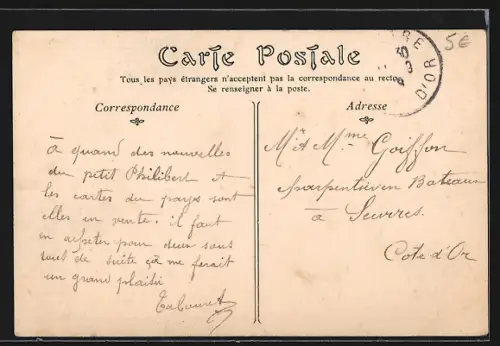 Carte Postale
Tous les pays étrangers n'acceptent pas la correspondance au recto
Se renseigner à la poste.
Correspondance
à quand des nouvelles
du petit Philibert et
les cartes du pays sont
elles en vente. il faut
en acheter pour deux sous
tout de suite ça me ferait
un grand plaisir
Tabouret
Adresse
Mr et Mme Goiffon
charpentier en Bateaux
à Seurre.
Cote d'Or
RE
D'OR
5€